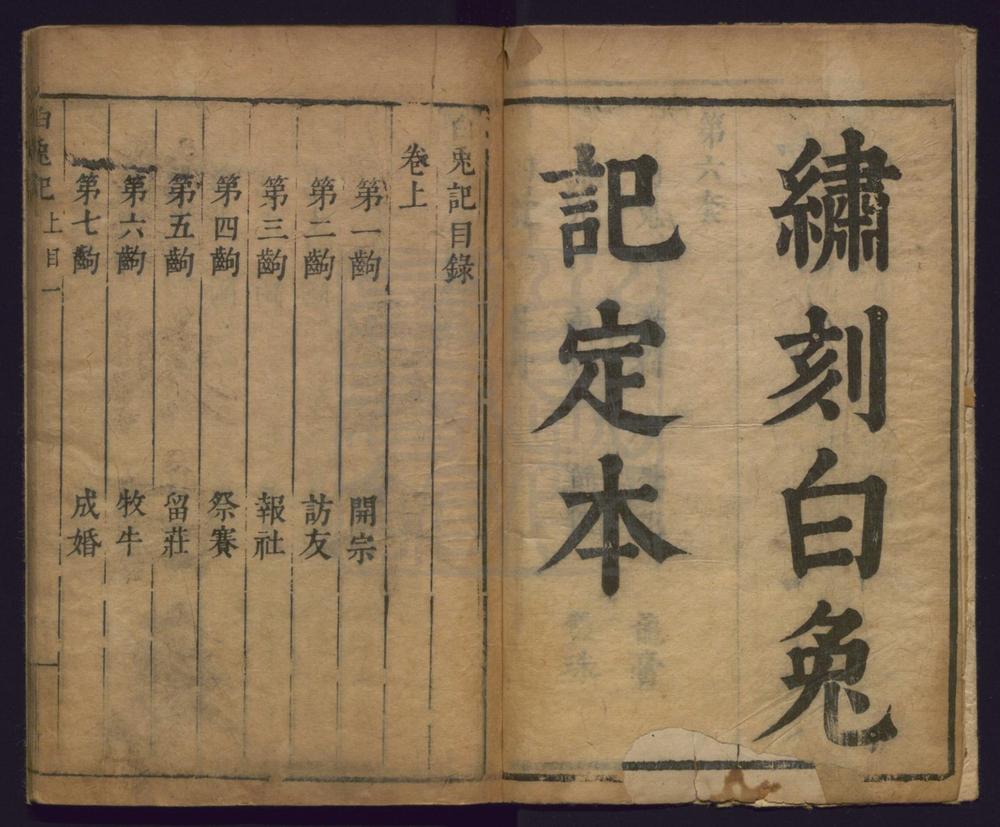 繡刻白兔
記定本
白兔記目錄
卷上
第一齣 開宗
第二齣 訪友
第三齣 報社
第四齣 祭賽
第五齣 留莊
第六齣 牧牛
第七齣 成婚
白兔記 上目 一